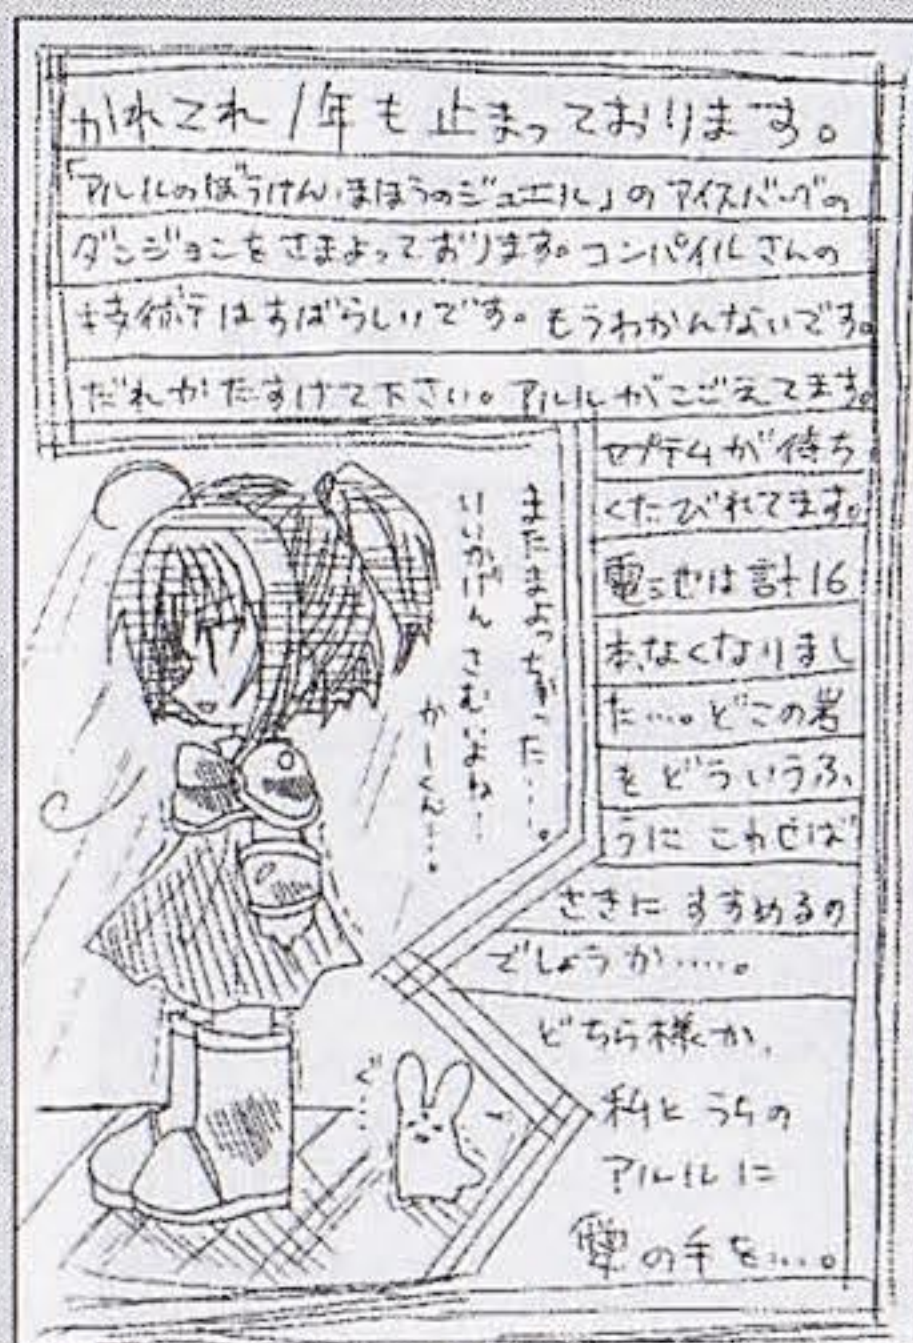 かれこれ1年も止まっております。
「アルルのぼうけん・まほうのジュエル」のアイスバーグの
ダンジョンをさまよっております。コンパイルさんの
技術はすばらしいです。もうわかんないです。
だれかたすけて下さい。アルルがこごえてます。
セプテムが待ち
くたびれてます。
電池は計16
本なくなりまし
た…。どこの岩
をどういうふ
うに こわせば
さきに すすめるの
でしょうか……。
どちら様か、
私とうちの
アルルに
愛の手を…。
またまよっちゃった……。
いいかげんさむいよね…
かーくん…。
ぐ…